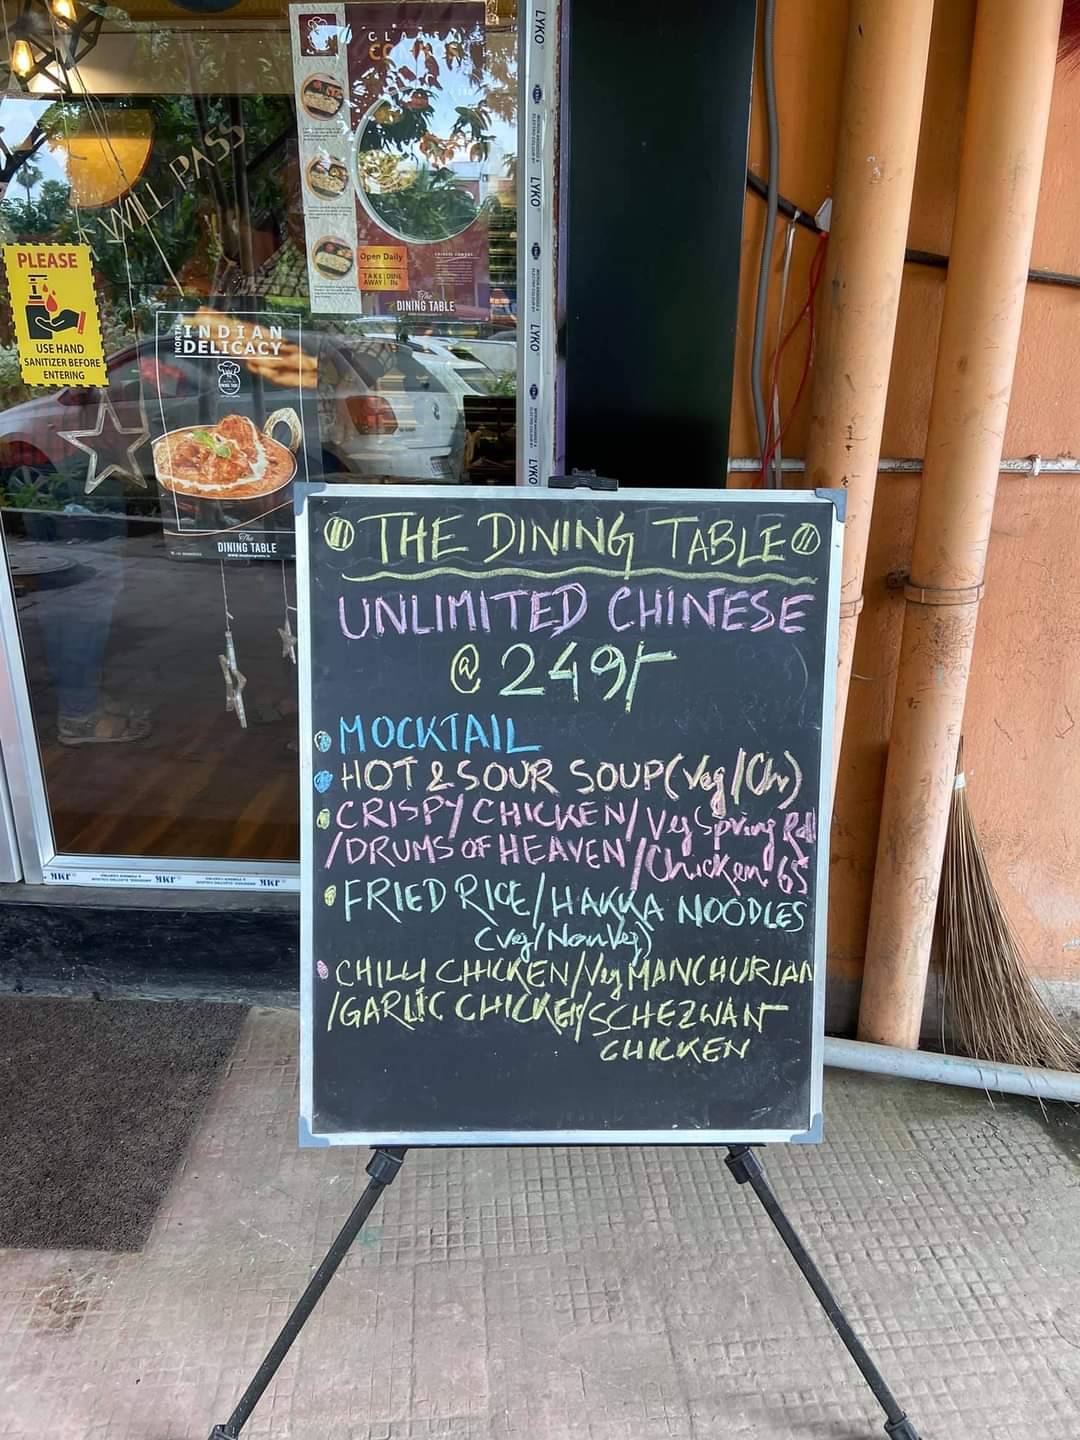 CLASSIC
COMBOS
WILL PASS
PLEASE
USE HAND
SANITIZER BEFORE
ENTERING
Open Daily
TAKE AWAY | DINE IN
The
DINING TABLE
NORTH INDIAN
DELICACY
The
DINING TABLE
LYKO
LYKO
LYKO
LYKO
THE DINING TABLE
UNLIMITED CHINESE
@ 249/-
MOCKTAIL
HOT & SOUR SOUP (Veg/Chn)
CRISPY CHICKEN/Veg Spring Roll
/DRUMS OF HEAVEN/Chicken 65
FRIED RICE/HAKKA NOODLES
(Veg/Non Veg)
CHILLI CHICKEN/Veg MANCHURIAN
/GARLIC CHICKEN/SCHEZWAN
CHICKEN
MKF MKF MKF